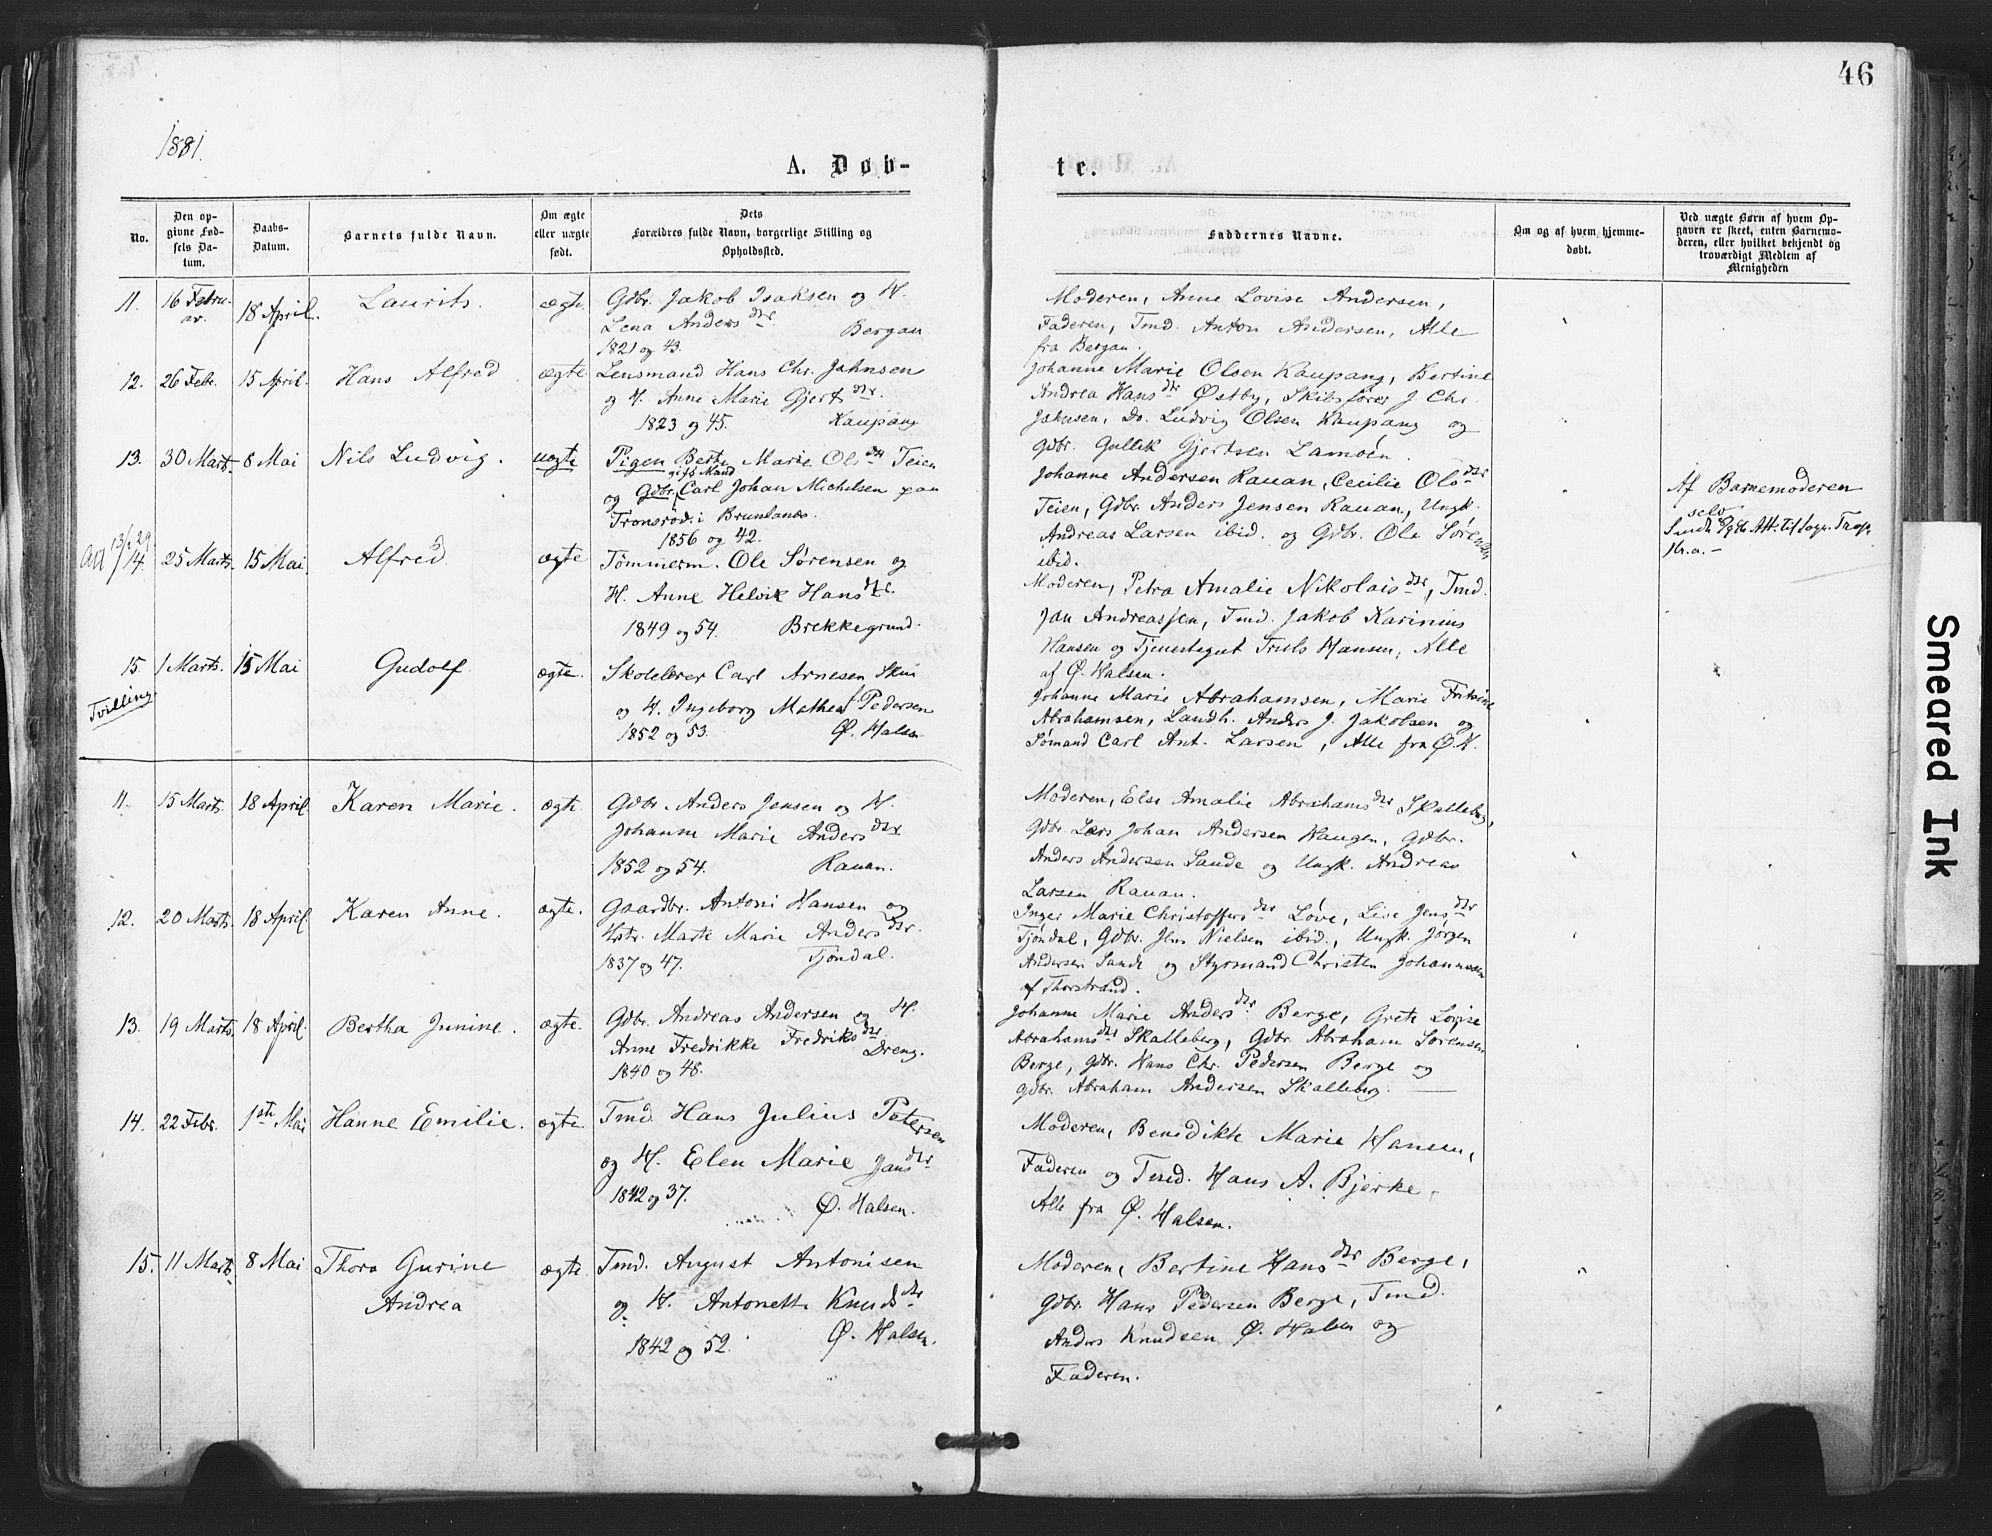 46
1881.
A. Døb-
te.
No.
Den op-
givne Fød-
sels Da-
tum.
Daabs-
Datum.
Barnets fulde Navn.
Om ægte
eller uægte
født.
Dets
Forældres fulde Navn, borgerlige Stilling og
Opholdssted.
Faddernes Navne.
Om og af hvem hjemme-
døbt.
Ved uægte Børn af hvem Op-
gaven er skeet, enten Barnemo-
deren, eller hvilket bekjendt og
troværdigt Medlem af
Menigheden
11. 16 Febru-
ar. 18 April. Laurits. ægte. Gdbr. Jakob Isaksen og H.
Lena Andersdtr. Bergan
1821 og 43.
Moderen, Anne Lovise Andersen,
Faderen, Tmd. Anton Andersen, Alle
fra Bergan.
12. 26 Febr. 15 April. Hans Alfred ægte Lensmand Hans Chr. Johnsen
og H. Anne Marie Gjertsdtr.
1823 og 45. Kaupang
Johanne Marie Olsen Kaupang, Bertine
Andrea Hansdtr Østby, Skibsfører J. Chr.
Johnsen, Do. Ludvig Olsen Kaupang og
Gdbr. Gullik Gjertsen Lamøen.
13. 30 Marts. 8 Mai Nils Ludvig. uægte Pigen Berthe Marie Olsdtr Teien
gift Mand
og Gdbr. Carl Johan Michelsen paa
Tronsrød i Brunlanæs.
1856 og 42.
Johanne Andersen Rauan, Cecilie Olsdtr
Teien, Gdbr Anders Jensen Rauan, Ungk.
Andreas Larsen ibid. og Gdbr. Ole Sørensen
ibid.
Af Barnemoderen
selv
14. 25 Marts. 15 Mai. Alfred ægte Tømmerm. Ole Sørensen og
H. Anne Helvik Hansdtr.
1849 og 54. Brekkegrund.
Moderen, Petra Amalie Nikolaisdtr, Tmd.
Jan Andreassen, Tmd. Jakob Karinius
Hansen og Tjenestegut Truls Hansen, Alle
af Ø. Halsen.
15 1 Marts. 15 Mai Gudolf ægte. Skolelærer Carl Arnesen Skui
Tvilling.
og H. Ingeborg Mathea Pedersen
1852 og 53. Ø. Halsen
Johanne Marie Abrahamsen, Marie Fritsine
Abrahamsen, Landh. Anders J. Jakobsen og
Sømand Carl Ant. Larsen, Alle fra Ø.H.
11. 15 Marts. 18 April Karen Marie. ægte. Gdbr. Anders Jensen og H.
Johanne Marie Andersdtr
1852 og 54. Rauan.
Moderen, Else Amalie Abrahamsdtr Skalleberg,
Gdbr. Lars Johan Andersen Haugen, Gdbr.
Anders Andersen Sande og Ungk. Andreas
Larsen Rauan.
12. 20 Marts. 18 April Karen Anne. ægte. Gaardbr. Antoni Hansen og
Hstr. Marte Marie Andersdtr.
1837 og 47. Tjøndal.
Inger Marie Christoffersdtr Løve, Live Jensdtr
Tjøndal, Gdbr. Jens Nielsen ibid., Ungk. Jørgen
Andersen Sande og Styrmand Christen Johannessen
af Thorstrand.
13. 19 Marts. 18 April. Bertha Junine. ægte. Gdbr. Andreas Andersen og H.
Anne Fredrikke Fredriksdtr
Dreng.
1840 og 48.
Johanne Marie Andersdtr Berge, Grete Lovise
Abrahamsdtr Skalleberg, Gdbr. Abraham Sørensen
Berge, Gdbr. Hans Chr. Pedersen Berge og
Gdbr. Abraham Andersen Skalleberg.
14. 22 Febr. 1ste Mai Hanne Emilie. ægte. Tmd. Hans Julius Petersen
og H. Elen Marie Jansdtr
1842 og 37. Ø. Halsen.
Moderen, Benedikte Marie Hansen,
Faderen og Tmd. Hans A. Bjerke.
Alle fra Ø. Halsen.
15. 11 Marts. 8 Mai Thora Gurine
Andrea
ægte. Tmd. August Antonisen
og H. Antonette Knudsdtr
1842 og 52. Ø. Halsen.
Moderen, Bertine Hansdtr Berge,
Gdbr. Hans Pedersen Berge, Tmd.
Anders Knudsen Ø. Halsen og
Faderen.
Smeared Ink